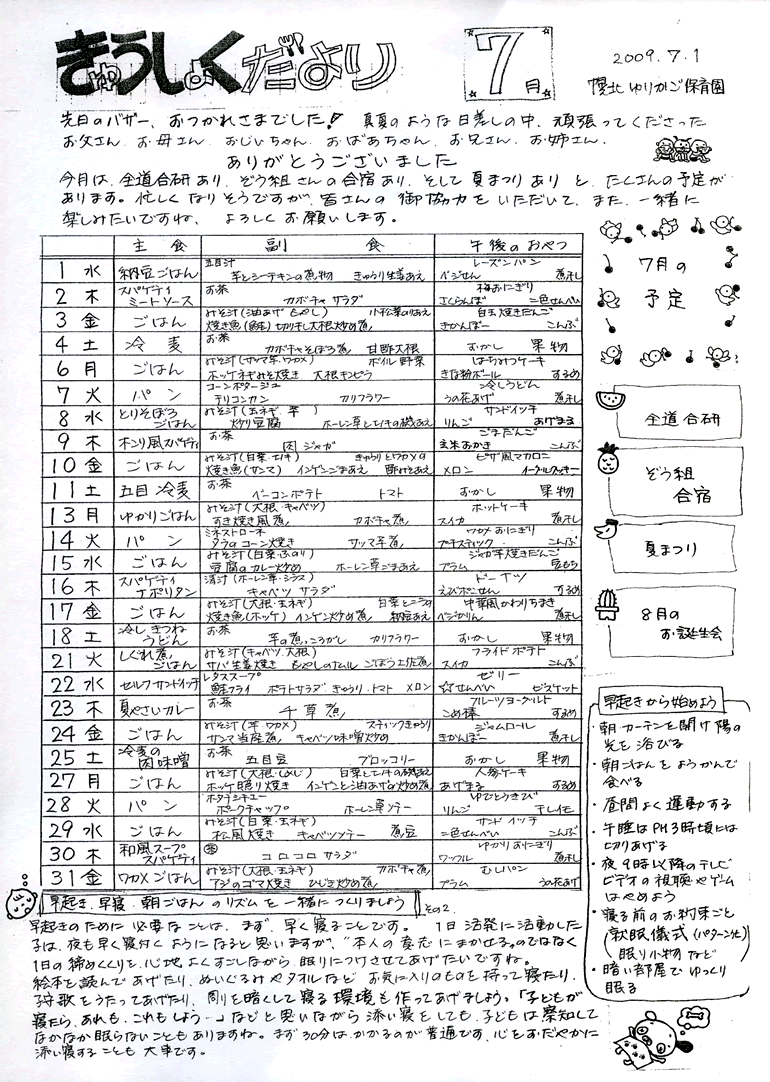 きゅうしょくだより
7月
2009.7.1
幌北ゆりかご保育園
先日のバザー、おつかれさまでした! 真夏のような日差しの中、頑張ってくださった
お父さん、お母さん、おじいちゃん、おばあちゃん、お兄さん、お姉さん、
ありがとうございました
今月は、全道合研あり、ぞう組さんの合宿あり、そして夏まつりありと、たくさんの予定が
あります。忙しくなりそうですが、皆さんの御協力をいただいて、また、一緒に
楽しみたいですね。よろしくお願いします。
主食 副食 午後のおやつ
1 水 納豆ごはん 五目汁 芋とシーチキンの煮物 きゅうり生姜あえ レーズンパン ベジせん 煮干し
2 木 スパゲティミートソース お茶 カボチャサラダ 梅おにぎり さくらんぼ 二色せんべい
3 金 ごはん みそ汁(油あげ もやし) 小松菜のりあえ 焼き魚(鮭) 切り干し大根炒め煮 白玉焼きだんご きかんぼー こんぶ
4 土 冷麦 お茶 カボチャそぼろ煮 甘酢大根 おかし 果物
6 月 ごはん みそ汁(サツマ芋・ワカメ) ボイル野菜 ホッケネギみそ焼き 大根キンピラ はちみつケーキ きな粉ボール するめ
7 火 パン コーンポタージュ チリコンカン カリフラワー 冷しうどん うの花あげ 煮干し
8 水 とりそぼろごはん みそ汁(玉ネギ・芋) 炒り豆腐 ホーレン草とモヤシの磯あえ サンドイッチ りんご あげまる
9 木 キンピラ風スパゲティ お茶 肉ジャガ ごまだんご 玄米あかき こんぶ
10 金 ごはん みそ汁(白菜・エノキ) きゅうりとワカメの酢みそあえ 焼き魚(サンマ) インゲンごまあえ ピザ風マカロニ メロン
11 土 五目冷麦 お茶 ベーコンポテト トマト おかし 果物
13 月 ゆかりごはん みそ汁(大根・キャベツ) すき焼き風煮 カボチャ煮 ホットケーキ スイカ 煮干し
14 火 パン ミネストローネ タラのコーン焼き サツマ芋煮 ワカメおにぎり プチスティック こんぶ
15 水 ごはん みそ汁(白菜・ふのり) 豆腐のカレー炒め ホーレン草ごまあえ ジャガ芋焼きだんご プラム 豆もち
16 木 スパゲティナポリタン 清汁(ホーレン草・シラス) キャベツサラダ ドーナツ えびポンせん するめ
17 金 ごはん みそ汁(大根・玉ネギ) 焼き魚(ホッケ) インゲン炒め煮 白菜とニラの納豆あえ 中華風かわりちまき ベジかりん 煮干し
18 土 冷しきつねうどん お茶 芋の煮っころがし カリフラワー おかし 果物
21 火 しぐれ煮ごはん みそ汁(キャベツ・大根) サバ生姜焼き もやしのナムル ごぼう土佐煮 フライドポテト スイカ こんぶ
22 水 セルフサンドイッチ レタススープ 鮭フライ ポテトサラダ きゅうり・トマト メロン ゼリー ☆せんべい ビスケット
23 木 夏やさいカレー お茶 千草煮 フルーツヨーグルト こめ棒 するめ
24 金 ごはん みそ汁(芋・ワカメ) スティックきゅうり サンマ当座煮 キャベツ味噌炒め ジャムロール きかんぼー 煮干し
25 土 冷麦の肉味噌 お茶 五目豆 ブロッコリー おかし 果物
27 月 ごはん みそ汁(大根・しめじ) 白菜とモヤシの磯あえ ホッケ照り焼き インゲンと油あげの炒め煮 人参ケーキ あげまる するめ
28 火 パン ホタテシチュー ポークチャップ ホーレン草ソテー ゆでとうきび りんご 干しイモ
29 水 ごはん みそ汁(白菜・玉ネギ) 松風焼き キャベツソテー 煮豆 サンドイッチ 二色せんべい こんぶ
30 木 和風スープスパゲティ 茶 コロコロサラダ ゆかりおにぎり ワッフル 煮干し
31 金 ワカメごはん みそ汁(大根・玉ネギ) カボチャ煮 アジのゴマ焼き ひじき炒め煮 むしパン プラム うの花あげ
7月の
予定
全道合研
ぞう組
合宿
夏まつり
8月の
お誕生会
早起きから始めよう
・朝カーテンを開け陽の
光を浴びる
・朝ごはんをようかんで
食べる
・昼間よく運動する
・午睡はPM3時頃には
切りあげる
・夜9時以降のテレビ
ビデオの視聴やゲーム
はやめよう
・寝る前のお約束ごと
(就眠儀式(パターン化)
眠り小物など)
・暗い部屋でゆっくり
眠る
早起き、早寝、朝ごはんのリズムを一緒につくりましょう その2.
早起きのために必要なことは、まず、早く寝ることです。 1日活発に活動した
子は、夜も早く寝付くようになると思いますが、"本人の意志にまかせる。"のではなく
1日の締めくくりを、心地よくすごしながら、眠りにつけさせてあげたいですね。
絵本を読んであげたり、ぬいぐるみやタオルなどお気に入りのものを持って寝たり、
子守歌をうたってあげたり、周りを暗くして寝る環境も作ってあげましょう。「子どもが
寝たら、あれも、これもしよう…」などと思いながら添い寝をしても、子どもは察知して
なかなか眠らないこともありますね。まず30分はかかるのが普通です。心をおだやかに
添い寝することも大事です。